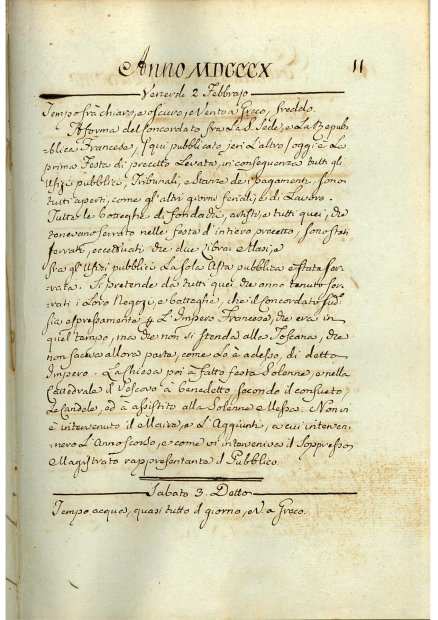 Anno MDCCCX 11
Venerdì 2 Febbrajo
Tempo frà chiaro, e oscuro, e Vento a Greco, freddo.
A forma del Concordato fra La S. Sede, e La Repub=
blica Francese, qui pubblicato jeri L'altro oggi è La
prima Festa di precetto Levata, in conseguenza tutti gli
Ufizj pubblici, Tribunali, e Stanze dei pagamenti sono
tutti aperti, come gli altri giorni feriali, e di Lavoro.
Tutte le botteghe di fondachi, artisti, e tutti quei, che
tenevano serrato nelle feste d'intiero precetto, sono stati
serrati, eccettuati che due Librai Masi, e
fra gli Ufizi pubblici La sola Asta pubblica è stata ser=
rata. Si pretende da tutti quei che anno tenuto ser=
rati i Loro Negozj, e botteghe, che il Concordato sud.o
sia espressamente p L'Impero Francese, che era in
quel tempo, ma che non si stenda alla Toscana, che
non faceva allora parte, come Lo è adesso, di detto
Impero. La Chiesa poi à fatto festa Solenne, e nella
Cattedrale il Vescovo à benedetto secondo il consueto
Le Candele, ed à assistito alla Solenne Messa. Non vi
è intervenuto il Maire, e L'Aggiunti, a cui interven=
nero L'Anno scorso, e come vi interveniva il Soppresso
Magistrato rappresentante il Pubblico.
Sabato 3. Detto
Tempo acqua, quasi tutto il giorno, e V. a Greco.